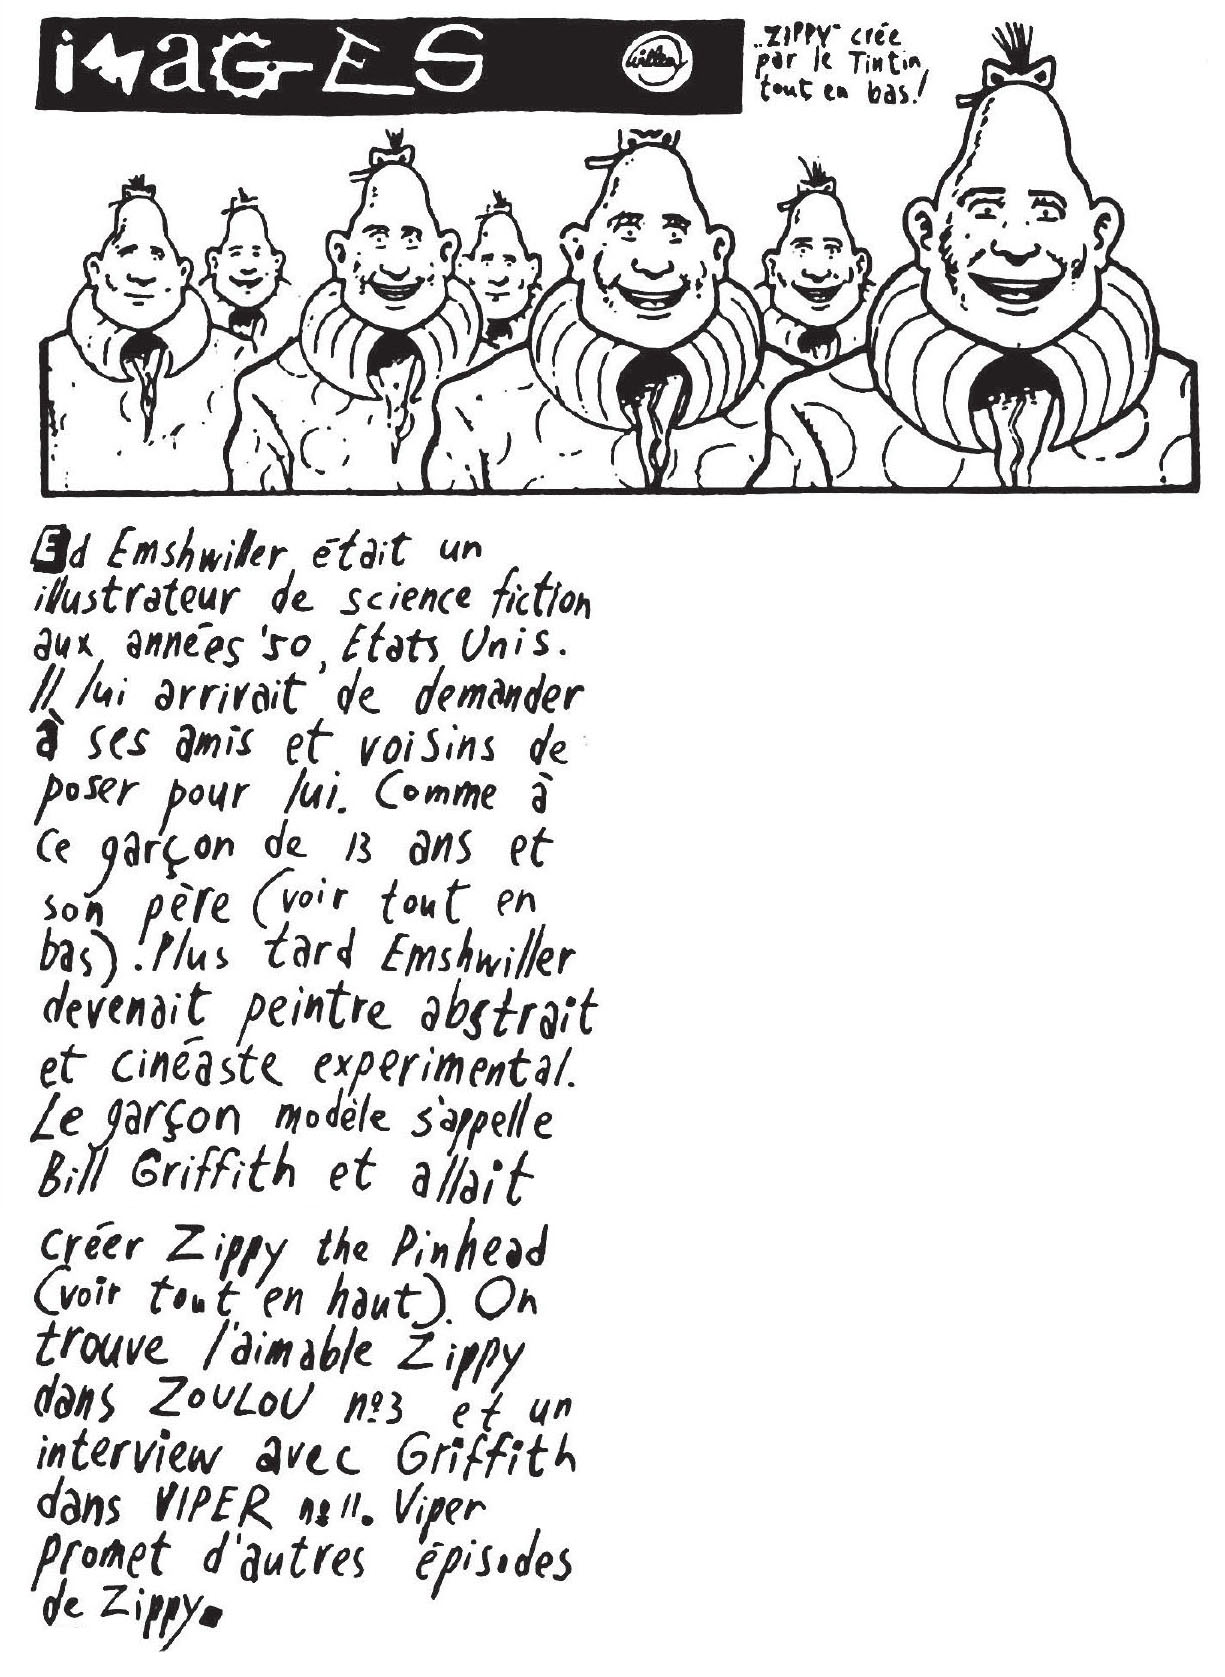 IMAGES
willem
„ZIPPY" crée
par le Tintin,
tout en bas!
Ed Emshwiller était un
illustrateur de science fiction
aux années '50, Etats Unis.
Il lui arrivait de demander
à ses amis et voisins de
poser pour lui. Comme à
ce garçon de 13 ans et
son père (voir tout en
bas). Plus tard Emshwiller
devenait peintre abstrait
et cinéaste experimental.
Le garçon modèle s'appelle
Bill Griffith et allait
créer Zippy the Pinhead
(voir tout en haut). On
trouve l'aimable Zippy
dans ZOULOU nº3 et un
interview avec Griffith
dans VIPER nº11. Viper
promet d'autres épisodes
de Zippy.